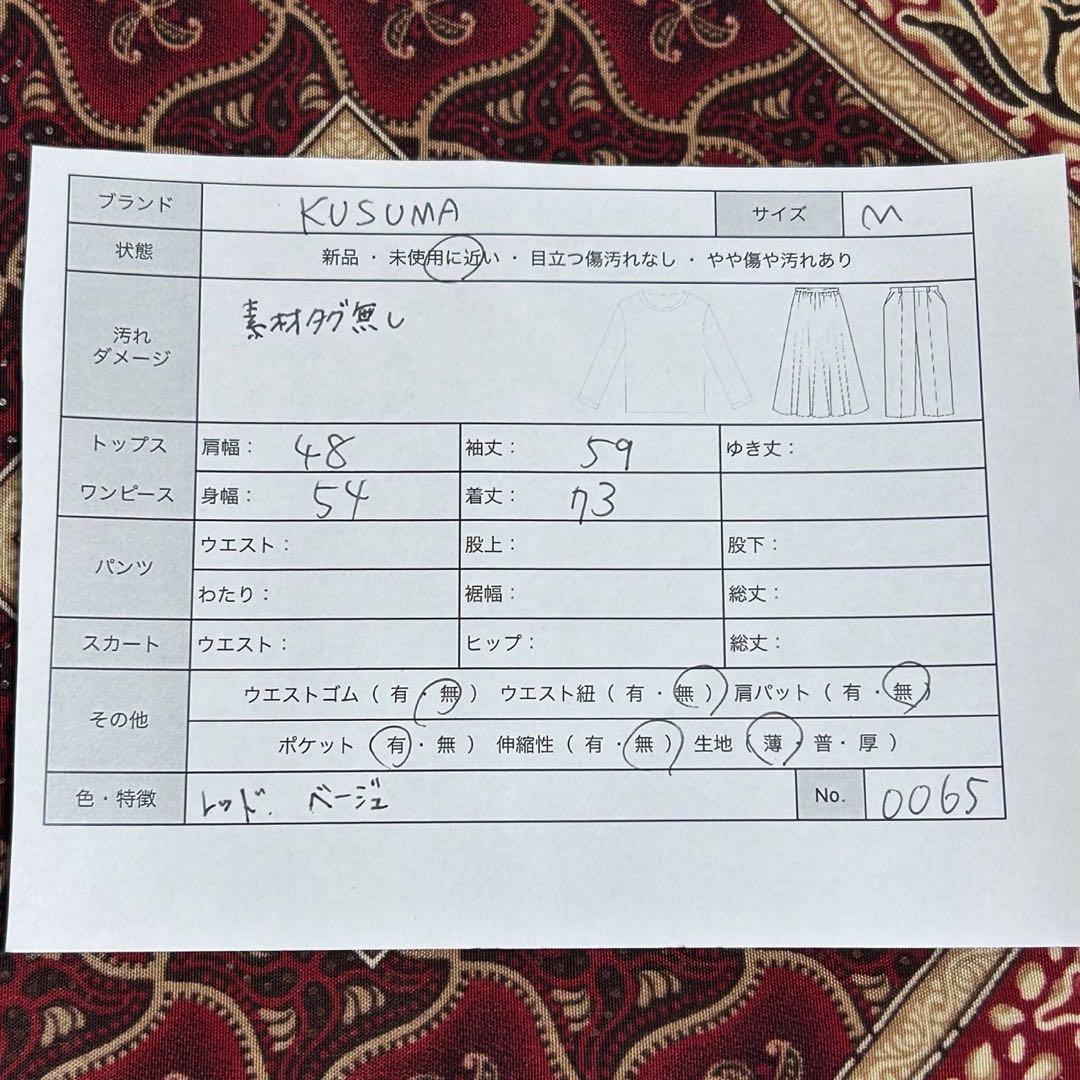 ブランド KUSUMA サイズ M
状態 新品 ・ 未使用に近い ・ 目立つ傷汚れなし ・ やや傷や汚れあり
汚れ
ダメージ
素材タグ無し
トップス 肩幅： 48 袖丈： 59 ゆき丈：
ワンピース 身幅： 54 着丈： 73
パンツ
ウエスト： 股上： 股下：
わたり： 裾幅： 総丈：
スカート ウエスト： ヒップ： 総丈：
その他
ウエストゴム（ 有 ・ 無 ） ウエスト紐（ 有 ・ 無 ） 肩パット（ 有 ・ 無 ）
ポケット（ 有 ・ 無 ） 伸縮性（ 有 ・ 無 ） 生地（ 薄 ・ 普 ・ 厚 ）
色・特徴 レッド. ベージュ No. 0065